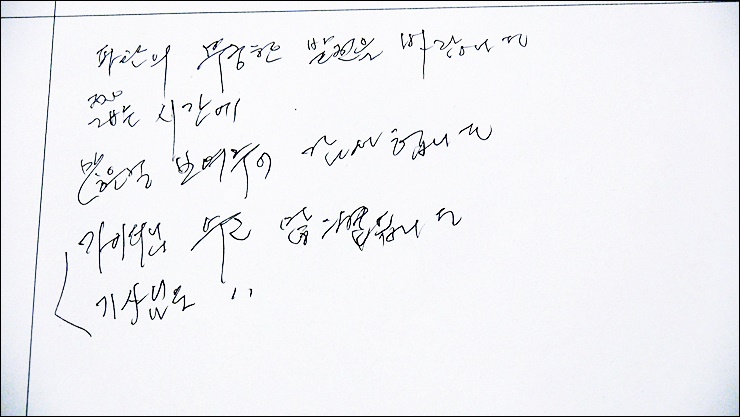 파란의 무궁한 발전을 바랍니다
짧은 시간에
많은걸 보여주어 감사합니다
가이드님 무고 감사합니다
기사님도 〃